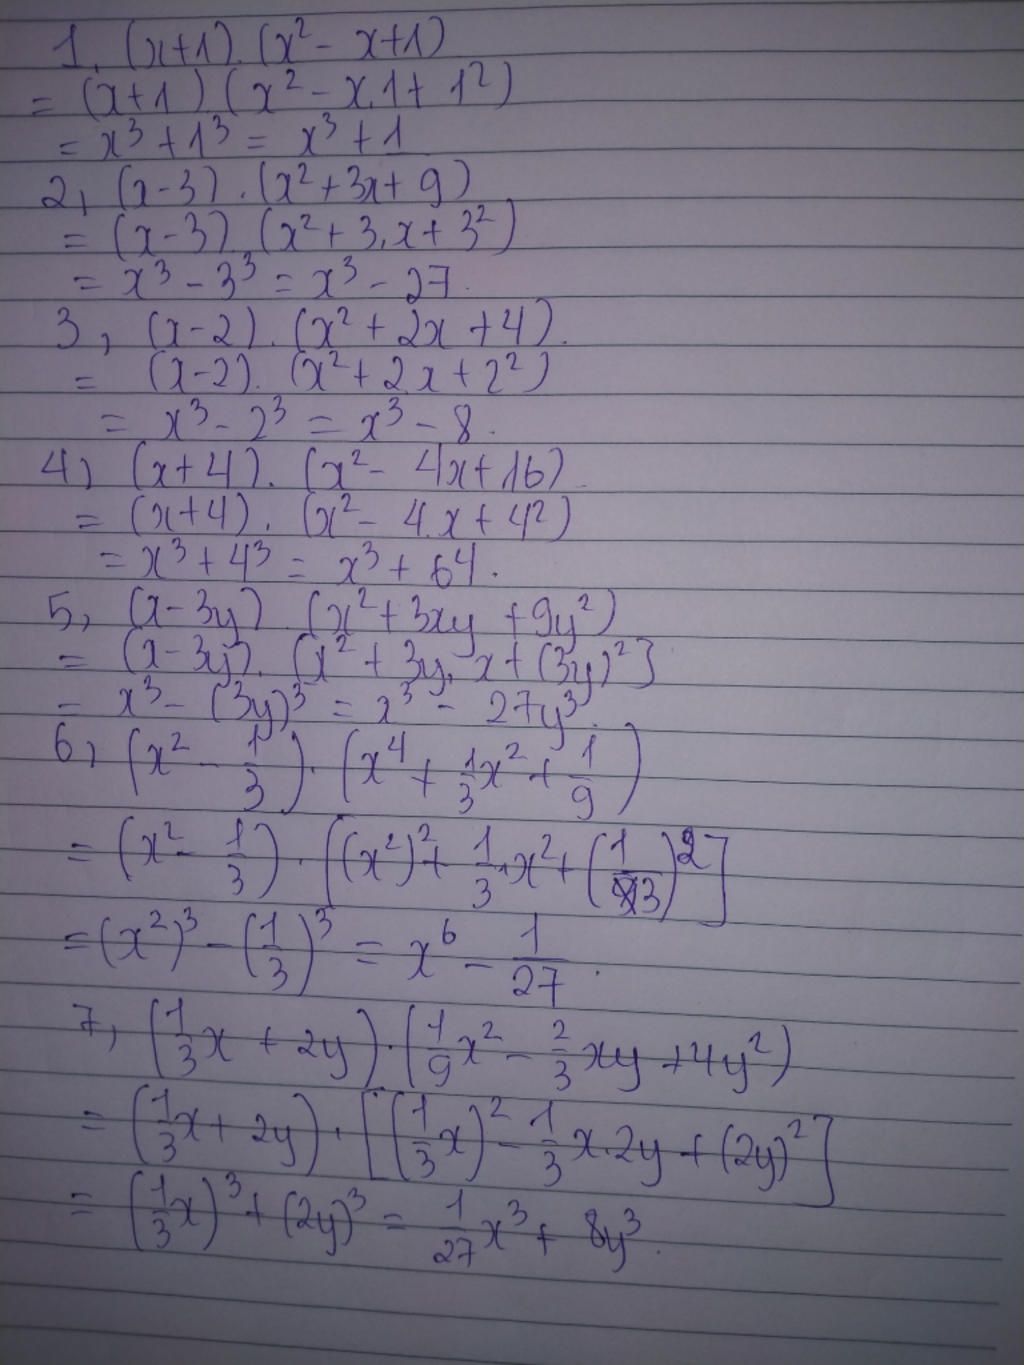 1, (x+1).(x² - x+1)
= (x+1).(x² - x.1 + 1²)
= x³ + 1³ = x³ + 1
2, (x-3).(x² + 3x + 9)
= (x-3).(x² + 3.x + 3²)
= x³ - 3³ = x³ - 27.
3, (x-2).(x² + 2x + 4).
= (x-2).(x² + 2.x + 2²)
= x³ - 2³ = x³ - 8.
4) (x+4).(x² - 4x + 16)
= (x+4).(x² - 4.x + 4²)
= x³ + 4³ = x³ + 64.
5, (x-3y).(x² + 3xy + 9y²)
= (x-3y).[x² + 3y.x + (3y)²]
= x³ - (3y)³ = x³ - 27y³.
6, (x² - 1/3).(x⁴ + 1/3x² + 1/9)
= (x² - 1/3).[(x²)² + 1/3.x² + (1/3)²]
= (x²)³ - (1/3)³ = x⁶ - 1/27.
7, (1/3x + 2y).(1/9x² - 2/3xy + 4y²)
= (1/3x + 2y).[(1/3x)² - 1/3x.2y + (2y)²]
= (1/3x)³ + (2y)³ = 1/27x³ + 8y³.